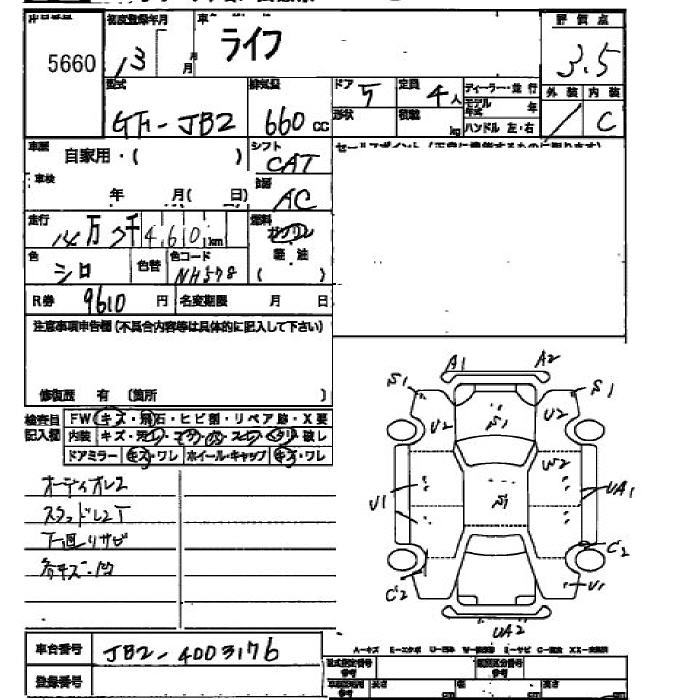 5660
初度登録年月
車
ライフ
評価点
13 月
3.5
型式
排気量
ドア 5
定員 4人
ディーラー・並行
外装 内装
GF-JB2
660 cc
形状
積載 kg
モデル年式 年
ハンドル 左・右
C
車歴
自家用・( )
シフト
CAT
セールスポイント
車検
年 月( 日)
AC
走行
万 千 4,610 km
燃料
ガソリン
軽・油
( )
色
シロ
色替
色コード
NH578
R券 9610 円
名変期限 月 日
注意事項申告欄(不具合内容等は具体的に記入して下さい)
修復歴 有 〔箇所 〕
検査員記入欄
FW キズ・飛石・ヒビ割・リペア跡・X要
内装
ドアミラー キズ・ワレ ホイール・キャップ キズ・ワレ
オーディオレス
スタッドレスT
下廻りサビ
各キズ・凹
A1 A2
S1 S1
U2 U2
S1
W2
U1
S1
UA1
C2 C2
U1
UA2
車台番号 JB2-4003176
登録番号
A-キズ
長さ
幅
高さ